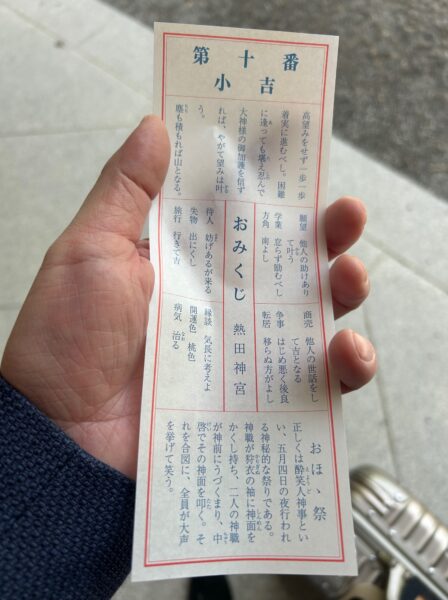 第十番
小吉
高望みをせず一歩一歩
着実に進むべし。困難
に逢っても堪え忍んで
大神様の御加護を信ず
れば、やがて望みは叶
う。
塵も積もれば山となる。
願望 他人の助けあり
て叶う
学業 怠らず励むべし
方角 南よし
待人 妨げあるが来る
失物 出にくし
旅行 行きて吉
おみくじ 熱田神宮
商売 他人の世話をし
て吉となる
争事 はじめ悪く後良
転居 移らぬ方がよし
縁談 気長に考えよ
開運色 桃色
病気 治る
おほゝ祭
正しくは酔笑人神事とい
い、五月四日の夜行われ
る神秘的な祭りである。
神職が狩衣の袖に神面を
かくし持ち、二人の神職
が神前にうづくまり、中
啓でその神面を叩く。そ
れを合図に、全員が大声
を挙げて笑う。